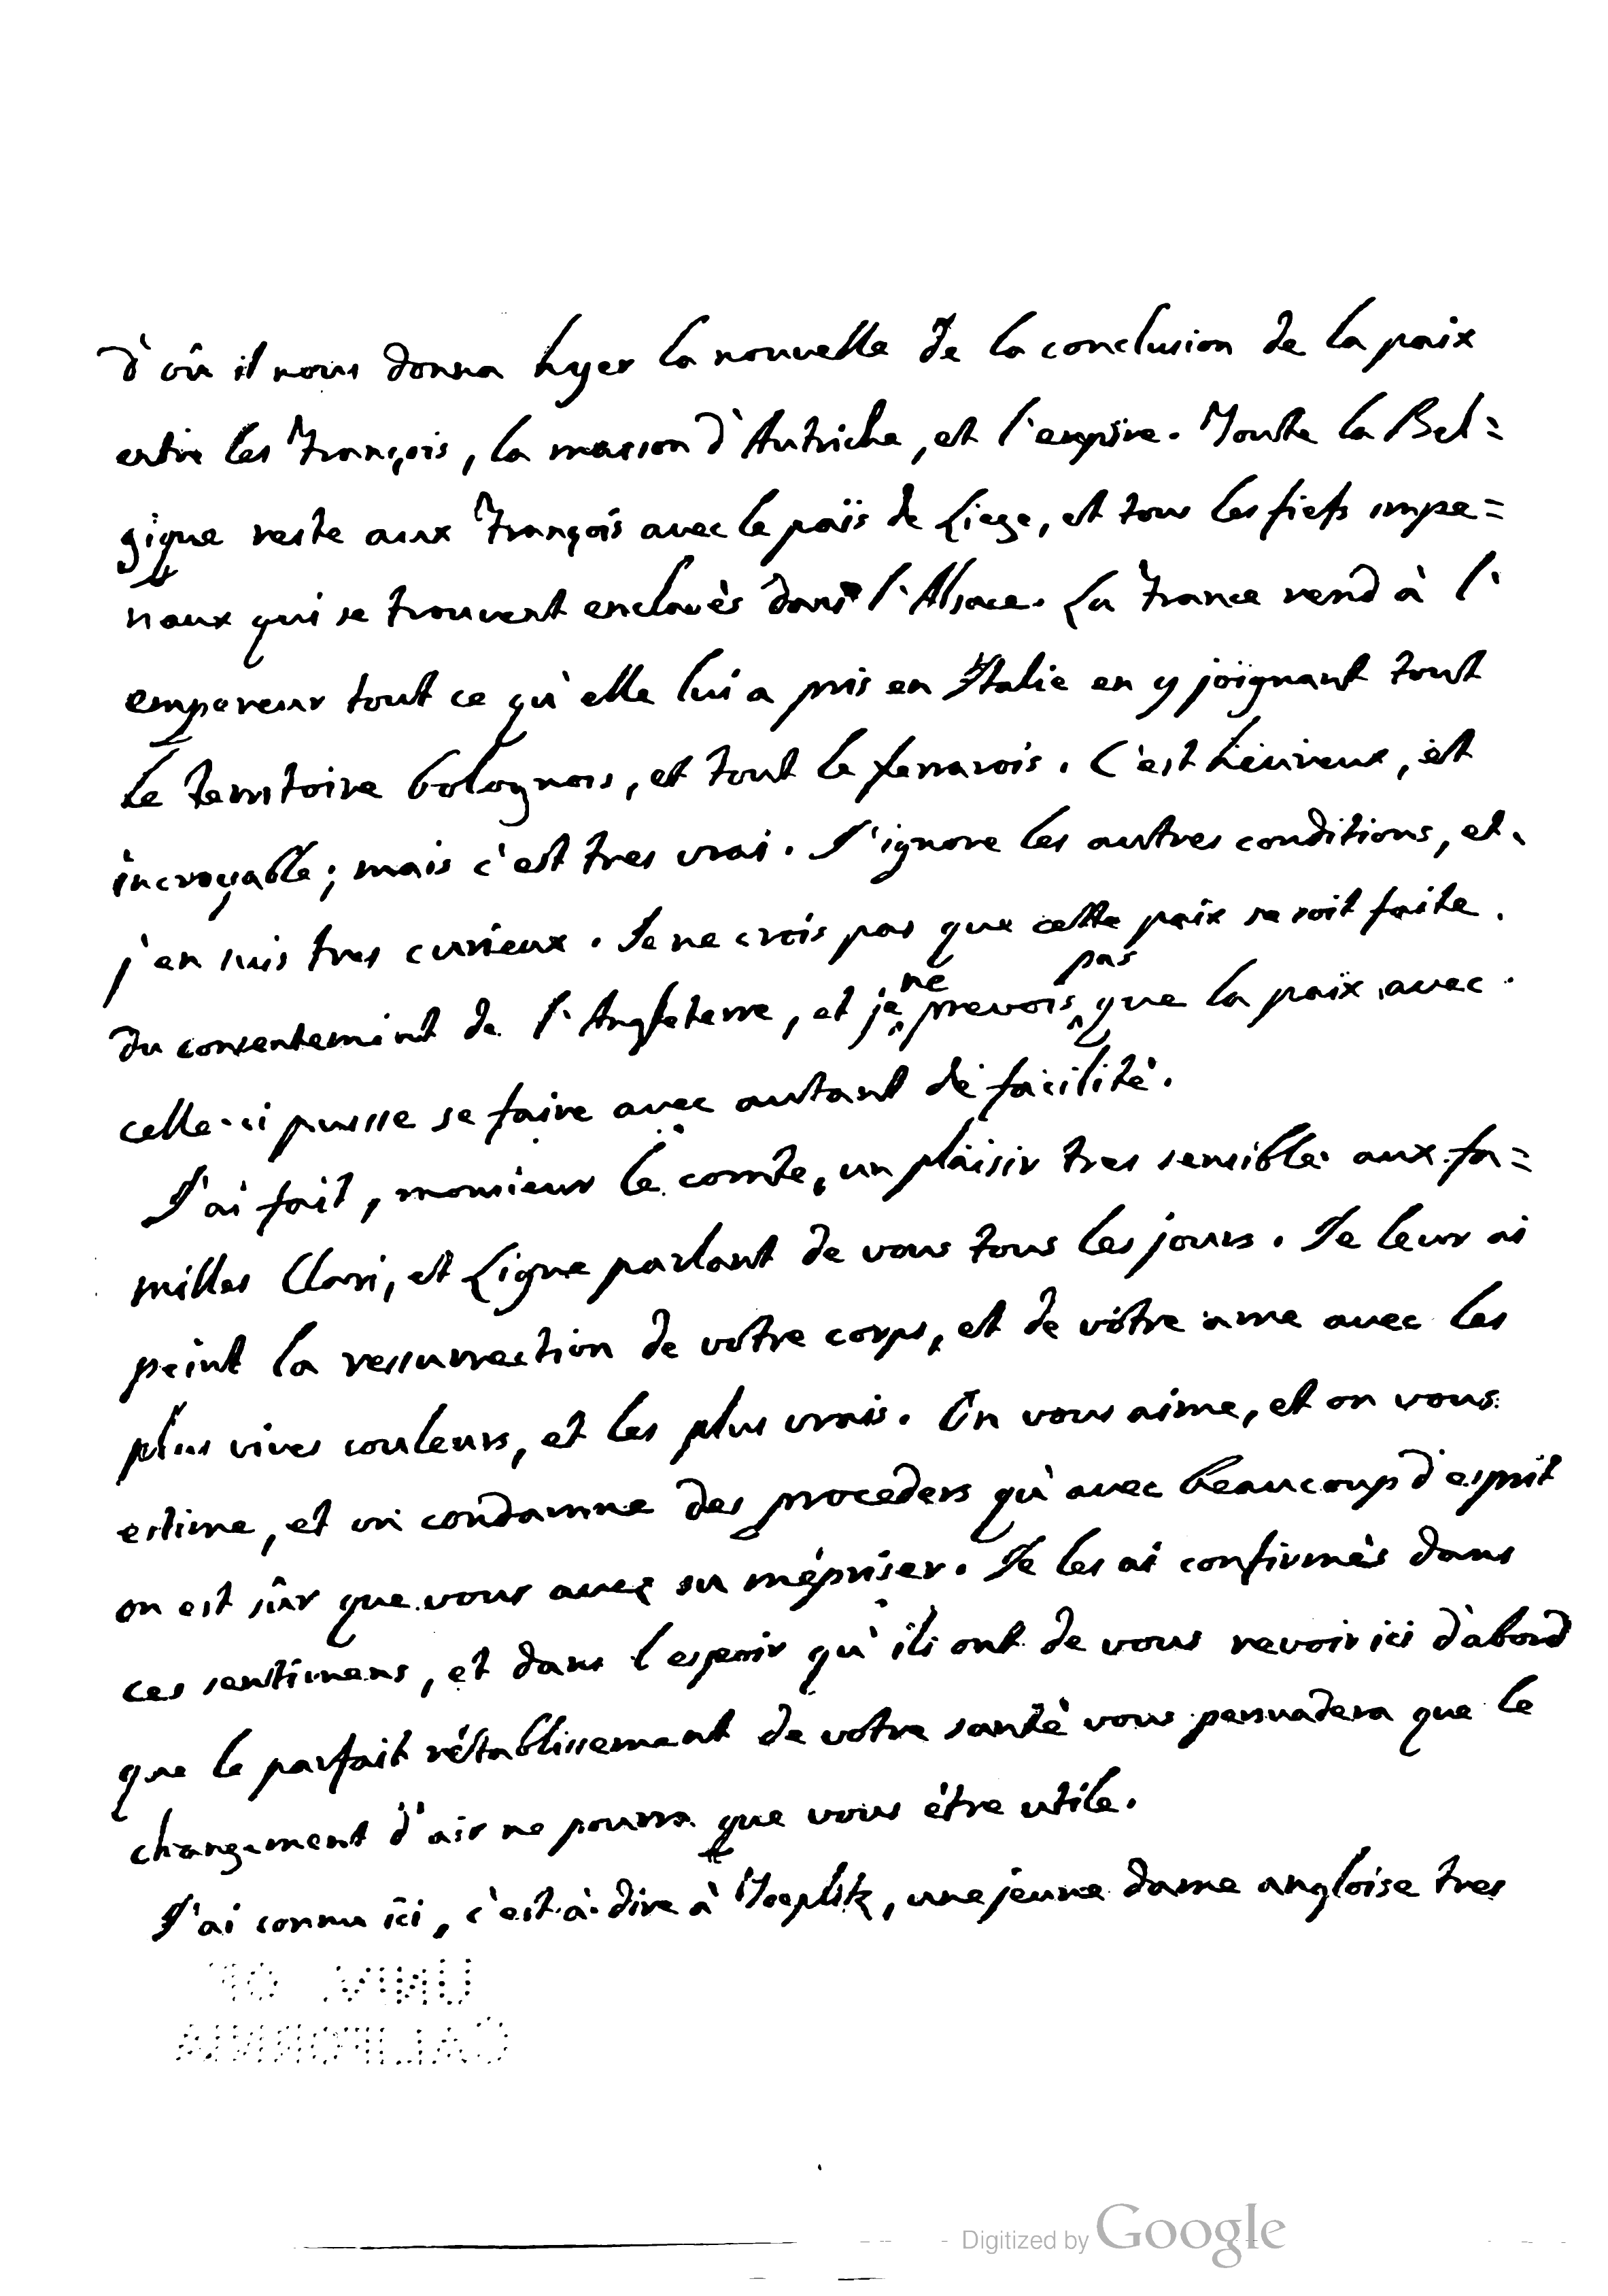 d'où il nous donna hyer la nouvelle de la conclusion de la paix
entre les François, la maison d'Autriche, et l'empire. Toute la Bel=
gique reste aux François avec le païs de Liege, et tous les fiefs impe=
riaux qui se trouvent enclavès dans l'Alsace. La France rend à l'
empereur tout ce qu'elle lui a pris en Italie en y joignant tout
le territoire bolognois, et tout le ferrarois. C'est heureux, et
incroyable; mais c'est tres vrai. J'ignore les autres conditions, et
j'en suis tres curieux. Je ne crois pas que cette paix se soit faite
du consentement de l'Angleterre, et je ne prevois pas que la paix avec
celle-ci puisse se faire avec autant de facilitè.
J'ai fait, monsieur le comte, un plaisir tres sensible aux fa=
milles Clari, et Ligne parlant de vous tous les jours. Je leur ai
peint la ressurrection de votre corps, et de votre ame avec les
plus vives couleurs, et les plus vrais. On vous aime, et on vous
estime, et on condamne des proceders qu'avec beaucoup d'esprit
on est sûr que vous avez su mépriser. Je les ai confirmès dans
ces sentimens, et dans l'espoir qu'ils ont de vous revoir ici d'abord
que le parfait rétablissement de votre santè vous persuadera que le
changement d'air ne pourra que vous être utile.
J'ai connu ici, c'est-à-dire à Toeplitz, une jeune dame angloise tres
UNIV. OF
CALIFORNIA
Digitized by Google